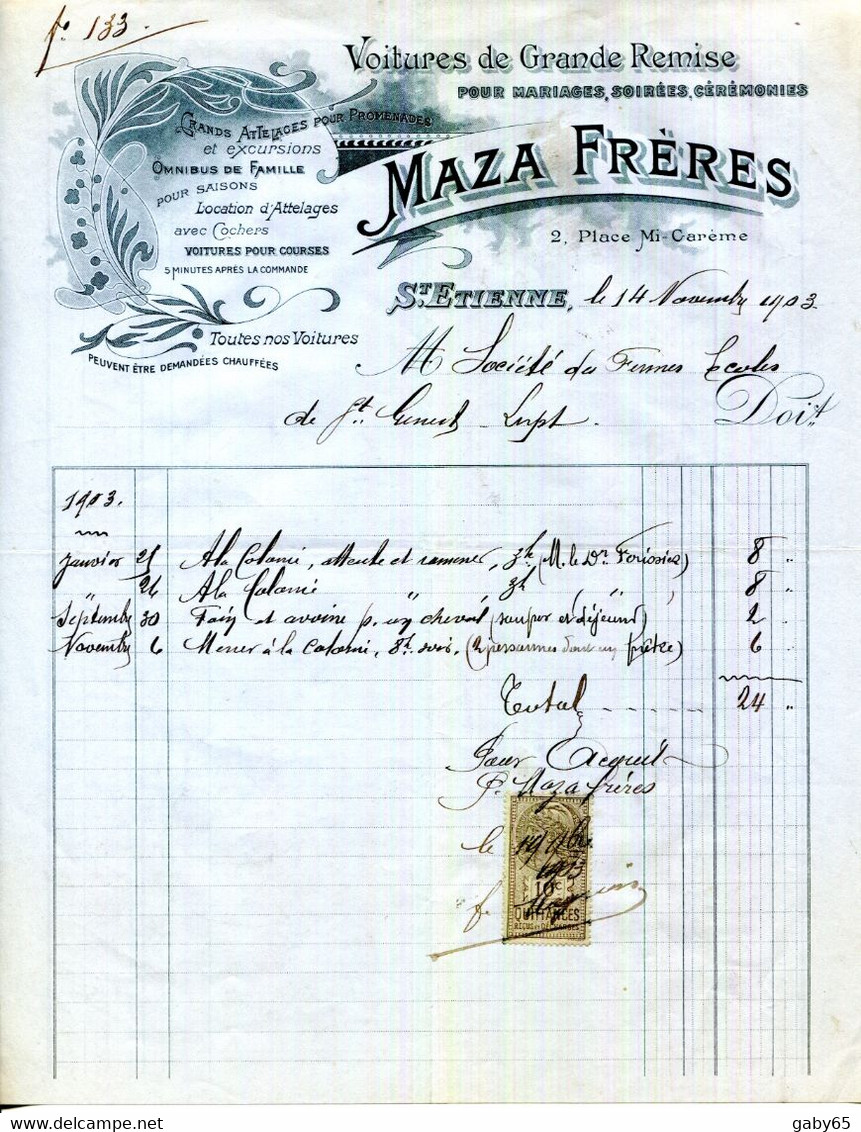 fo 133.
Voitures de Grande Remise
POUR MARIAGES, SOIRÉES, CÉRÉMONIES
GRANDS ATTELAGES POUR PROMENADES
et excursions
OMNIBUS DE FAMILLE
POUR SAISONS
Location d'Attelages
avec Cochers
VOITURES POUR COURSES
5 MINUTES APRÈS LA COMMANDE
Toutes nos Voitures
PEUVENT ÊTRE DEMANDÉES CHAUFFÉES
MAZA FRÈRES
2, Place Mi-Carème
ST ETIENNE, le 14 Novembre 1903
M Société des Fermes Ecoles
de St. Genest Lerpt. Doit
1903.
Janvier 25 A la Colonie, attente et ramener, 3h (M. le Dr. ) 8 "
" 26 A la Colonie " " 3h ( " ) 8 "
Septembre 30 Foin et avoine p. un cheval (souper et déjeuné) 2 "
Novembre 6 Mener à la Colonie, 8h. soir, (2 personnes dont un prêtre) 6 "
Total 24 "
Pour Acquit
P. Maza frères
le 19 9bre
1903
10c
QUITTANCES
REÇUS ET DÉCHARGES
delcampe.net
gaby65